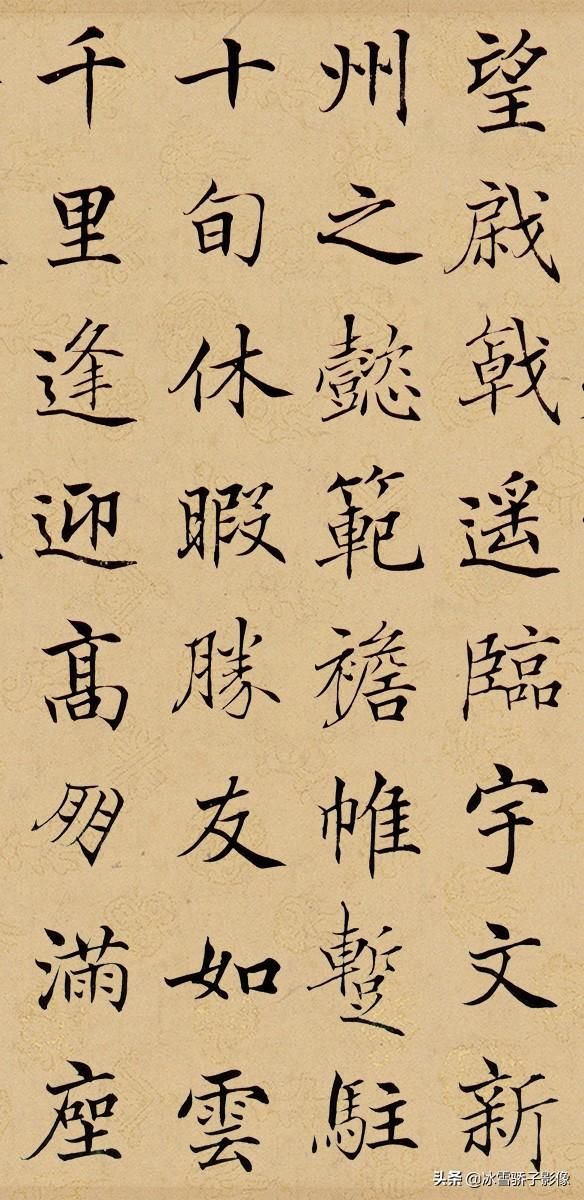 望戚戟遥臨宇文新
州之懿範襜帷蹔駐
十旬休暇勝友如雲
千里逢迎高朋滿座
头条 @冰雪骄子影像